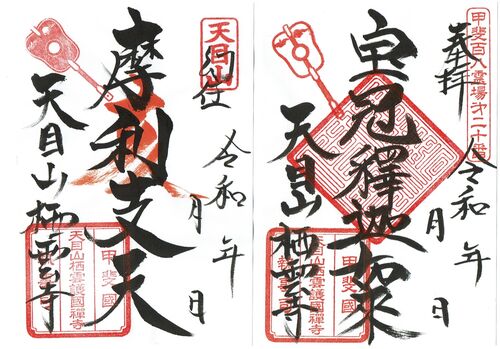 奉拝
甲斐百八霊場第二十番
令和 年 月 日
宝冠釋迦如来
天目山栖雲寺
甲斐國
天目山栖雲護國禅寺
天目山
納仕
令和 年 月 日
摩利支天
天目山栖雲寺
甲斐國
天目山栖雲護國禅寺